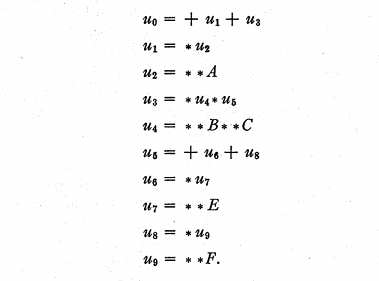 u₀ = + u₁ + u₃
u₁ = * u₂
u₂ = * * A
u₃ = * u₄ * u₅
u₄ = * * B * * C
u₅ = + u₆ + u₈
u₆ = * u₇
u₇ = * * E
u₈ = * u₉
u₉ = * * F.